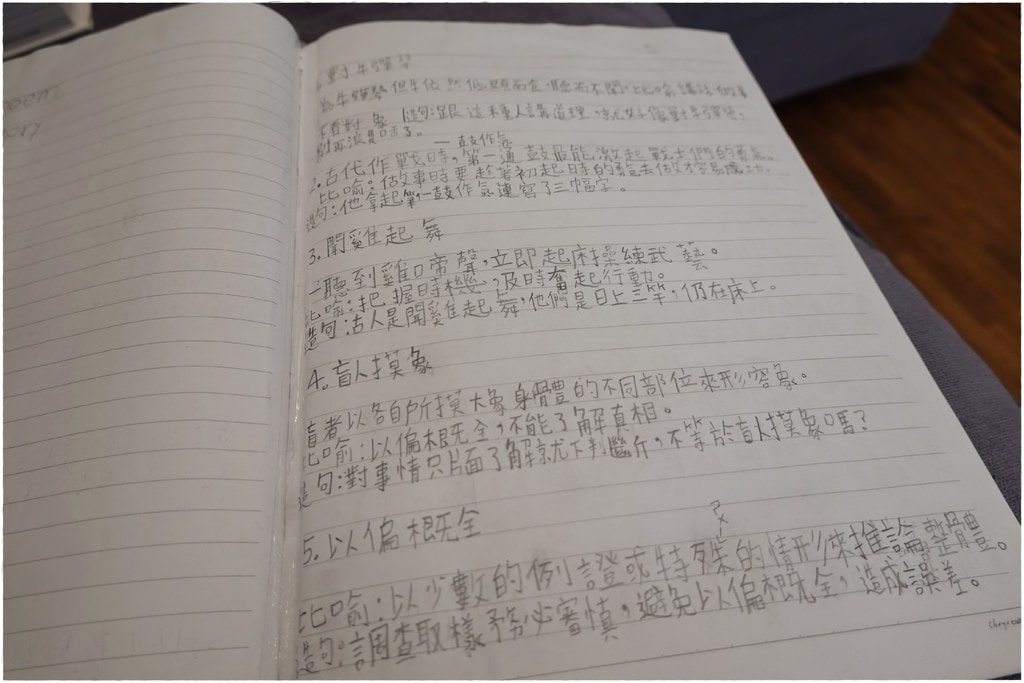 對牛彈琴
為牛彈琴但牛依然低頭而食,聽而不聞。比喻:講話做事
不看對象 造句:跟這種人講道理,就好像對牛彈琴,
別再浪費口舌了。
一鼓作氣
2.古代作戰時,第一通鼓最能激起戰士們的勇氣。
比喻:做事時要趁著初起時的勇氣去做才容易成功。
造句:他拿起筆,一鼓作氣連寫了三幅字。
3.聞雞起舞
一聽到雞啼聲,立即起床操練武藝。
比喻:把握時機,及時奮起行動。
造句:古人是聞雞起舞,他們是日上三竿,仍在床上。
4.盲人摸象
盲者以各自所摸大象身體的不同部位來形容象。
比喻:以偏概全,不能了解真相。
造句:對事情只片面了解就下判斷,不等於盲人摸象嗎?
5.以偏概全
比喻:以少數的例證或特殊的情形來推論整體。
造句:調查取樣務必審慎,避免以偏概全,造成誤差。